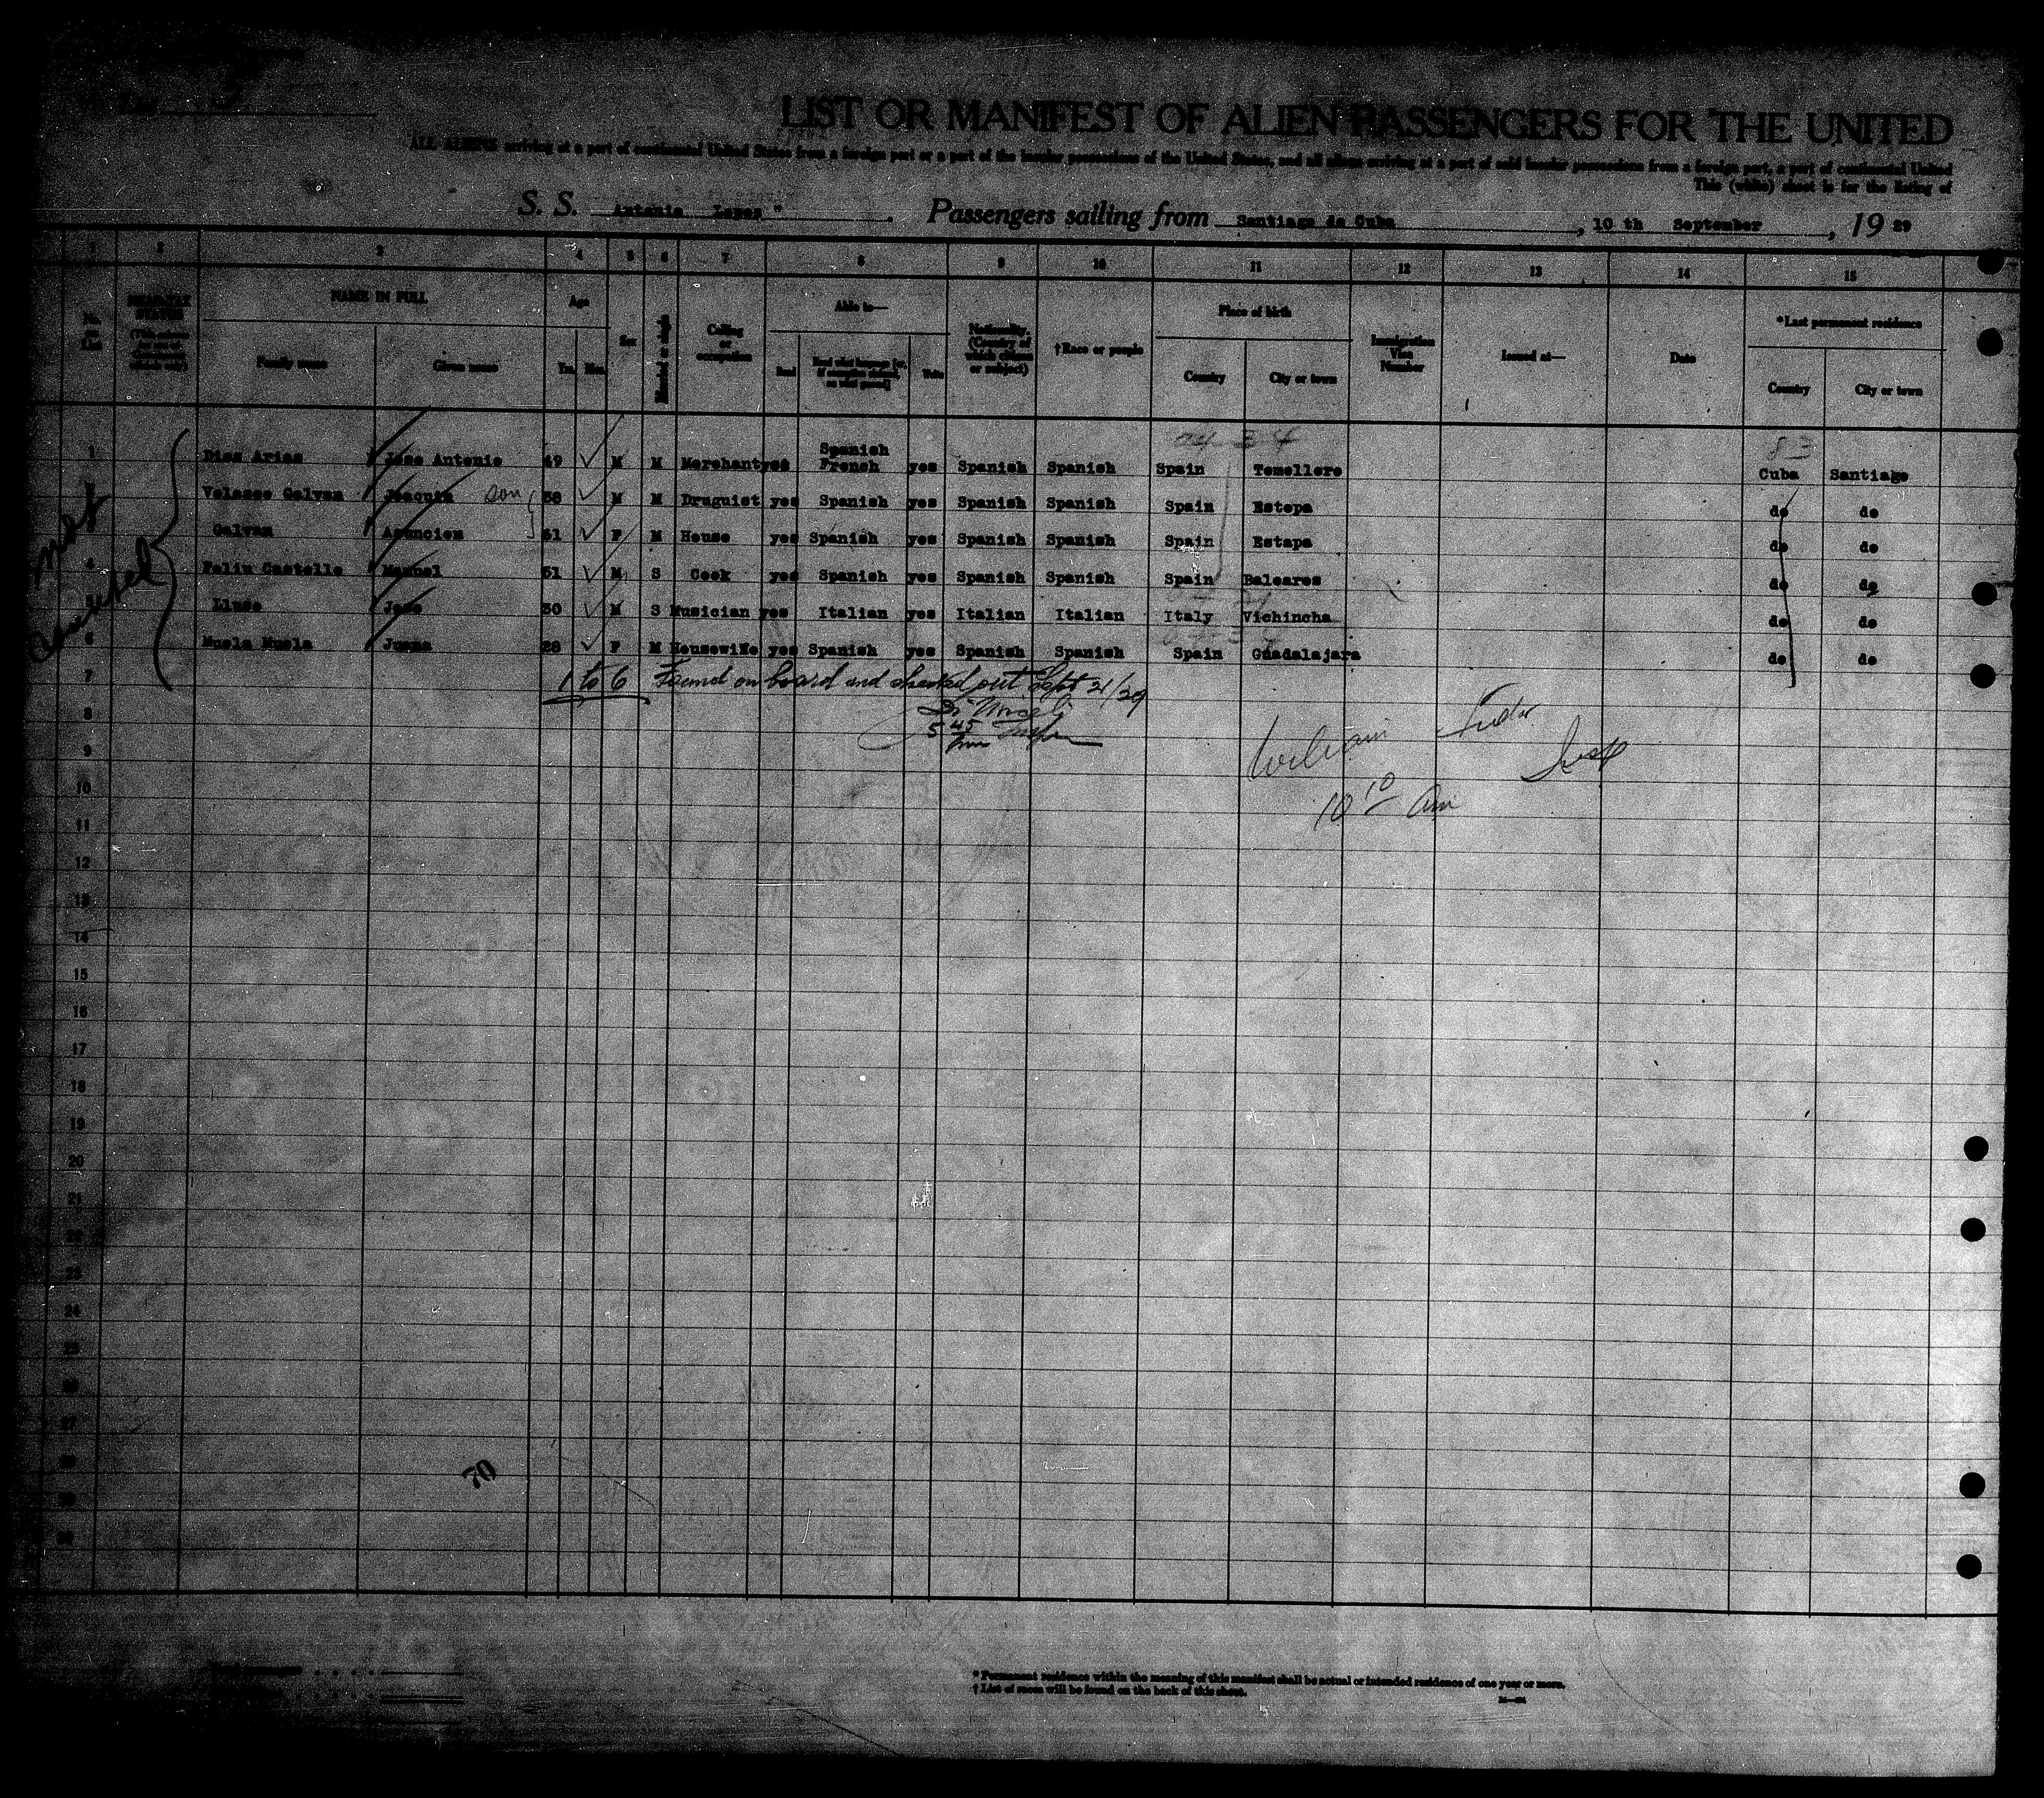 LIST OR MANIFEST OF ALIEN PASSENGERS FOR THE UNITED
ALL ALIENS arriving at a port of continental United States from a foreign port or a port of the insular possessions of the United States, and all aliens arriving at a port of said insular possessions from a foreign port, a port of continental United
This (white) sheet is for the listing of
S. S. Antonio Lopez " . Passengers sailing from Santiago de Cuba , 10 th September , 19 29
1 2 3 4 5 6 7 8 9 10 11 12 13 14 15
No. on List
HEAD-TAX STATUS
NAME IN FULL
Family name
Given name
Age
Yrs. Mos.
Sex
Married or single
Calling or occupation
Able to—
Read
Read what language [or, if exemption claimed, on what ground]
Write
Nationality. (Country of which citizen or subject)
†Race or people
Place of birth
Country
City or town
Immigration Visa Number
Issued at—
Date
*Last permanent residence
Country
City or town
83
1 Dias Arias Jose Antonio 49 M M Merchant yes Spanish French yes Spanish Spanish Spain Temellero Cuba Santiago
Velasco Galvan Joaquin son 38 M M Druguist yes Spanish yes Spanish Spanish Spain Estepa do do
Galvan Asuncion 61 F M House yes Spanish yes Spanish Spanish Spain Estapa do do
4 Felix Castello Manuel 51 M S Cook yes Spanish yes Spanish Spanish Spain Baleares do do
Lluso Jose 30 M S Musician yes Italian yes Italian Italian Italy Vichincha do do
6 Muela Muela Juana 28 F M Housewife yes Spanish yes Spanish Spanish Spain Guadalajara do do
not
7
1 to 6 Found on board and checked out Sept 21/29
8
5 45
9
William
10
10 10 am
11
12
13
14
15
16
17
18
19
20
21
22
23
24
25
26
27
28
29
30
70
* Permanent residence within the meaning of this manifest shall be actual or intended residence of one year or more.
† List of races will be found on the back of this sheet.